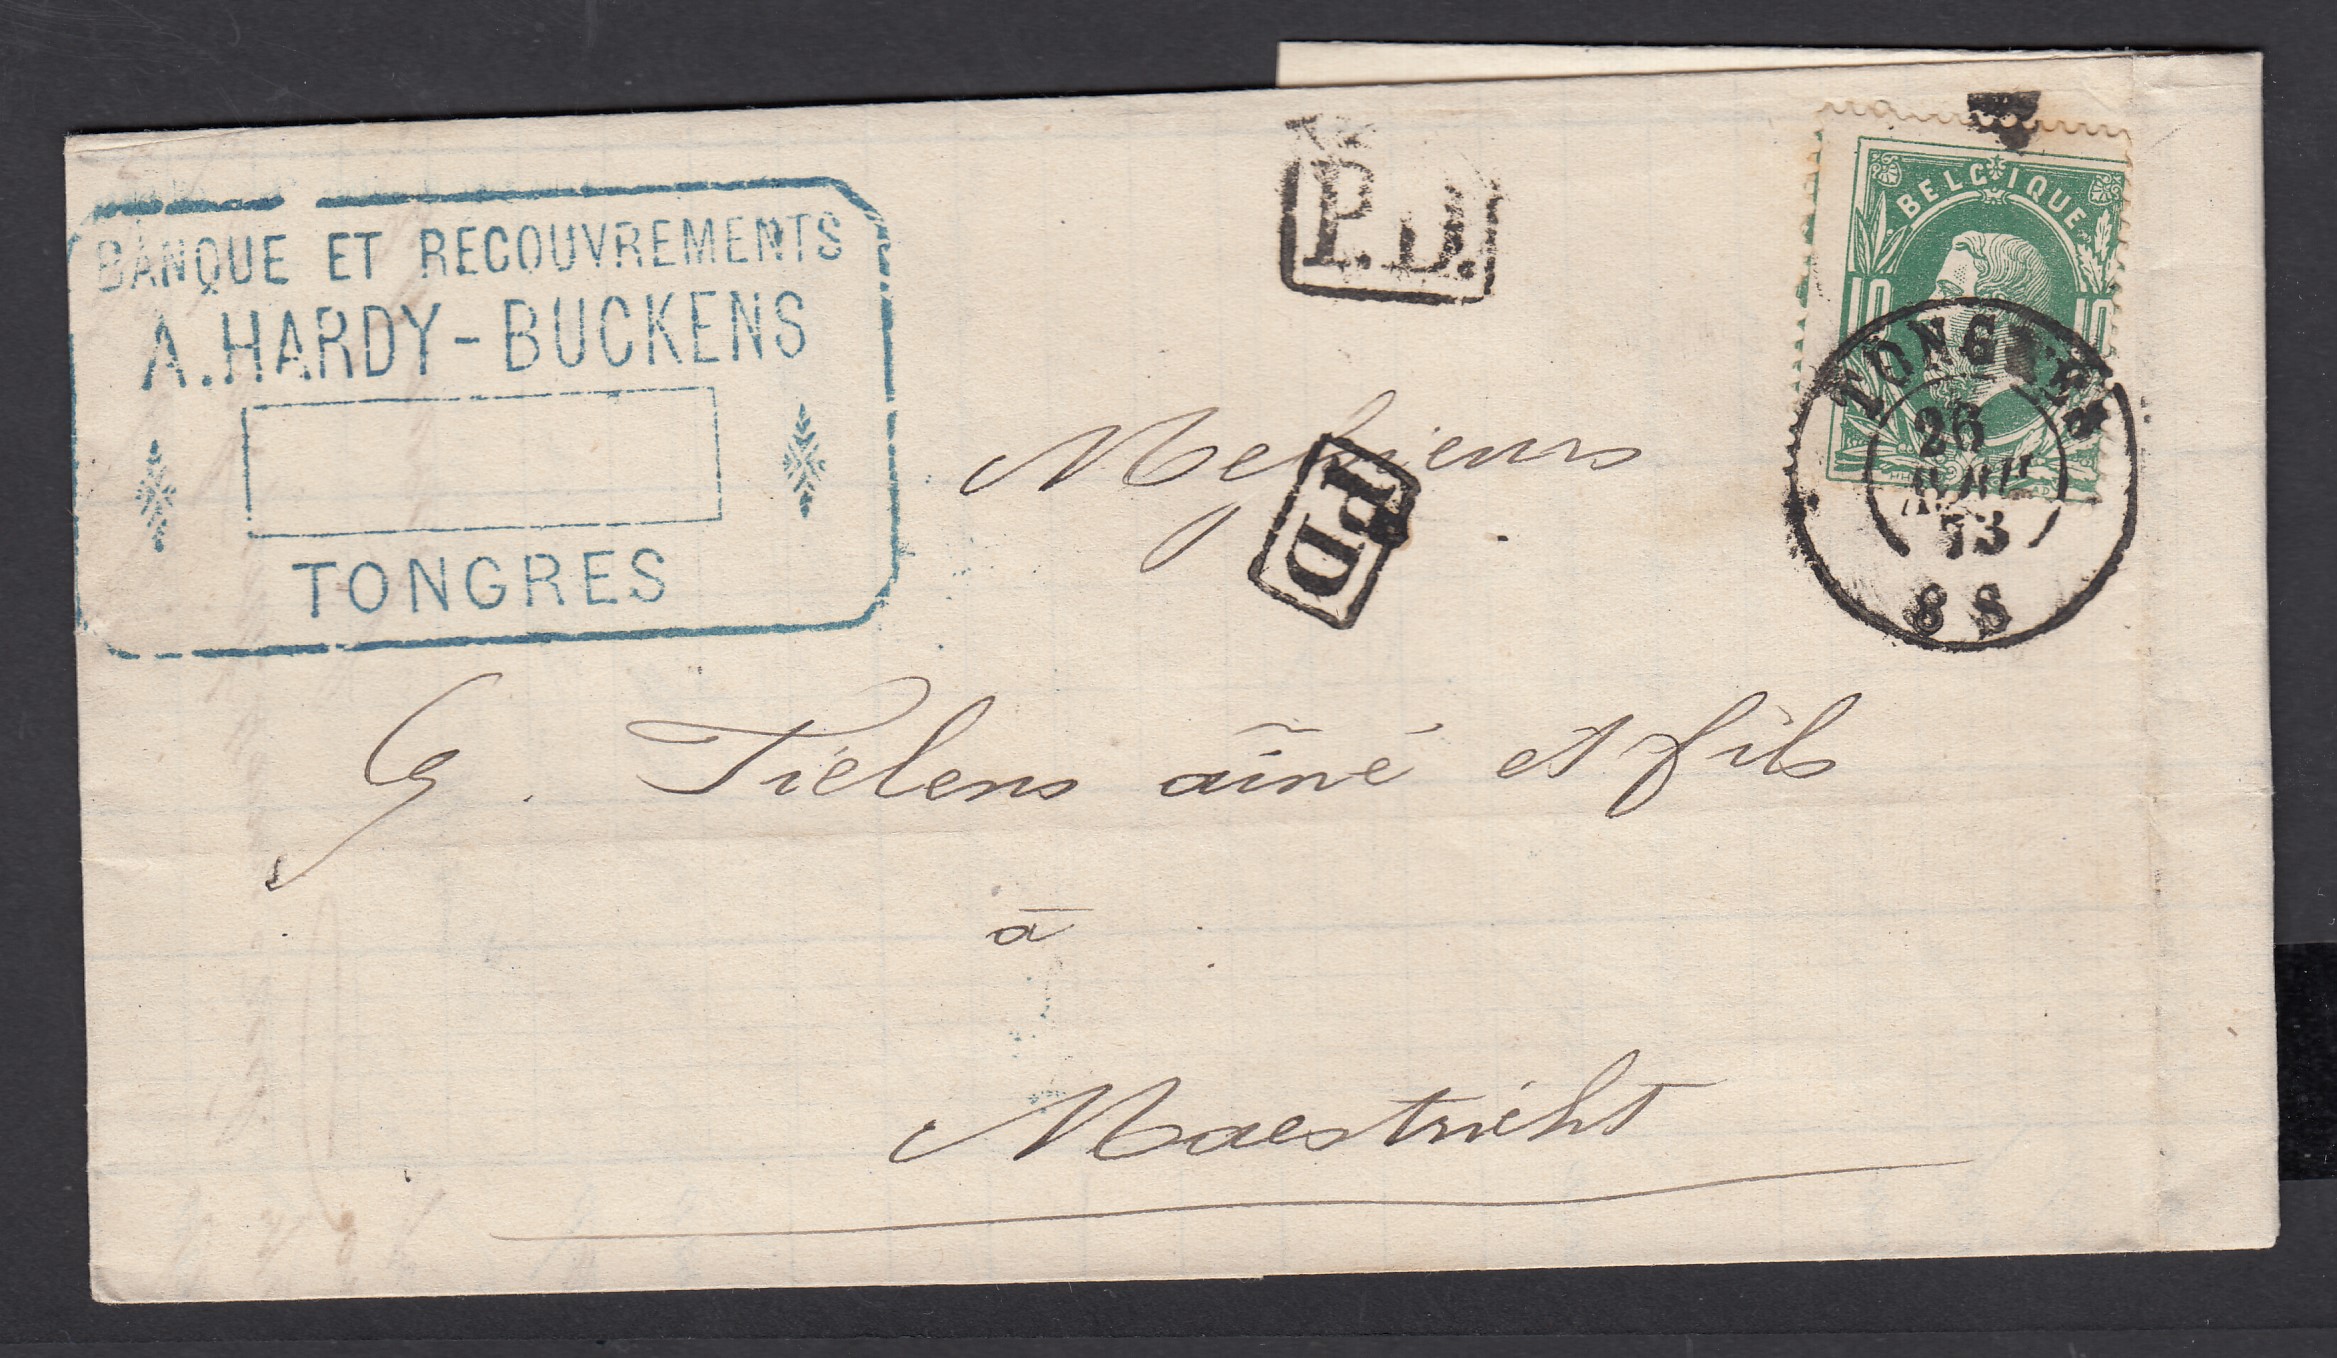 BANQUE ET RECOUVREMENTS
A. HARDY-BUCKENS
TONGRES
P.D.
PD
BELGIQUE
10 10
TONGRES
26
AVRIL
73
8 S
Messieurs
G. Tielens aîné et fils
à
Maestricht